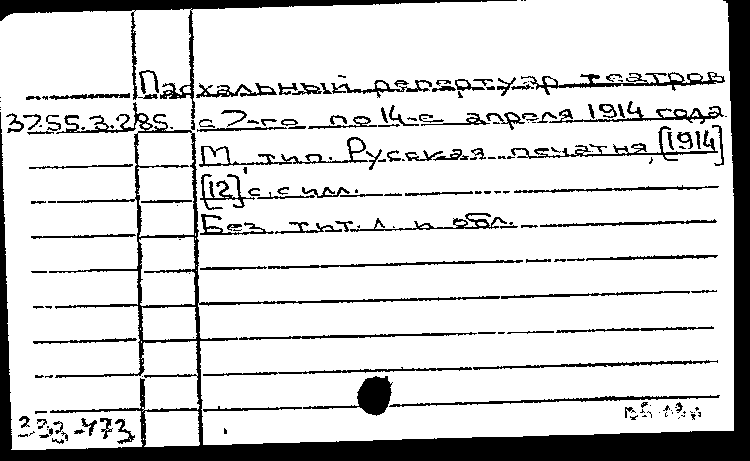 Пасхальный репертуар театров
37.55.3.285. с 7-го по 14-е апреля 1914 года
М., тип. Русская печатня, [1914]
[12] с. с илл.
Без тит. л. и обл.
333-473